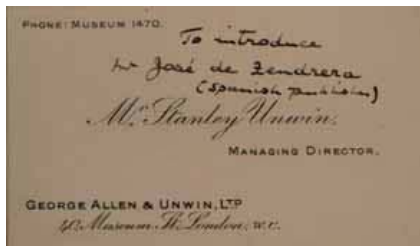 PHONE: MUSEUM 1470.
To introduce
Sr José de Zendrera
(Spanish publisher)
Mr. Stanley Unwin,
MANAGING DIRECTOR.
GEORGE ALLEN & UNWIN, LTD
40, Museum St. London, W.C.